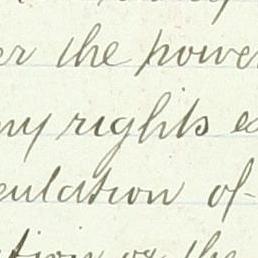 er the power
ny rights es
culation of
ation or the